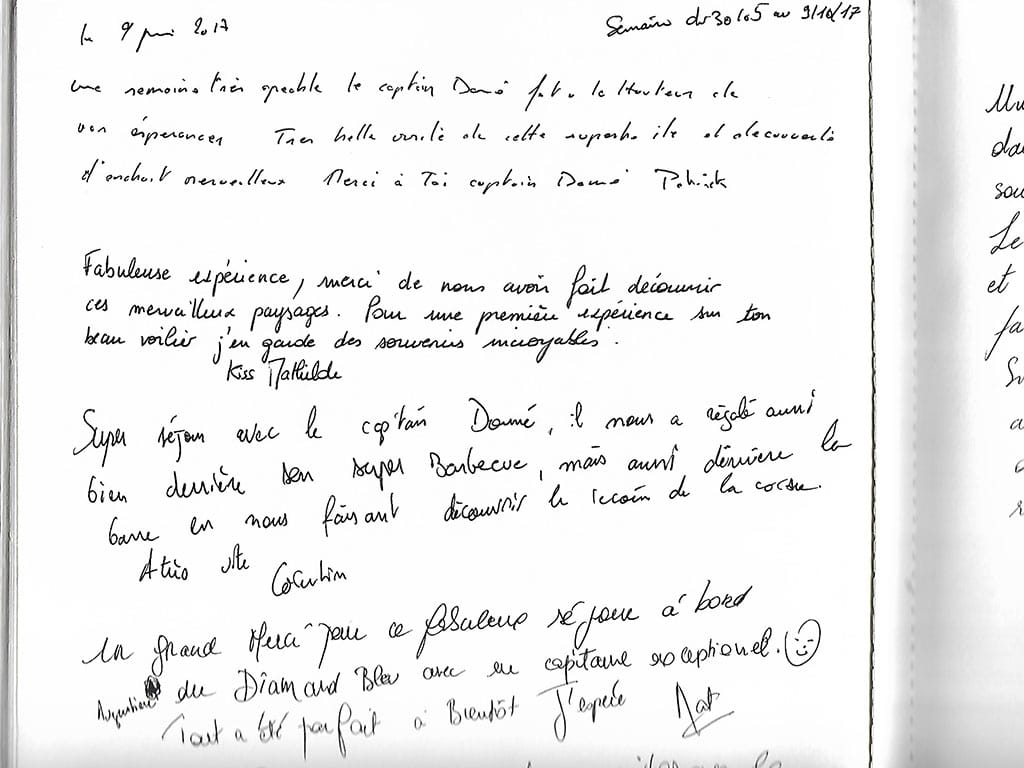 le 9 juin 2017
Semaine du 30/05 au 9/10/17
une semaine très agréable le captain Domé fut a la Hauteur de
nos éspérances Tres belle visite de cette superbe ile et decouverte
d'endroit merveilleux Merci à Toi captain Domé Patrick
Fabuleuse expérience, merci de nous avoir fait découvrir
ces merveilleux paysages. Pour une première expérience sur ton
beau voilier j'en garde des souvenirs incroyables.
Kiss Mathilde
Super séjour avec le captain Domé, il nous a régalé aussi
bien derrière son super Barbecue, mais aussi dérrière la
barre en nous faisant découvrir le recoin de la corse.
A très vite Corentin
Un grand Merci pour ce fabuleux séjour à bord
du Diamand Bleu avec un capitaine exceptionel.
Augustine
Tout a été parfait à Bientôt J'espère Nat
Le
et